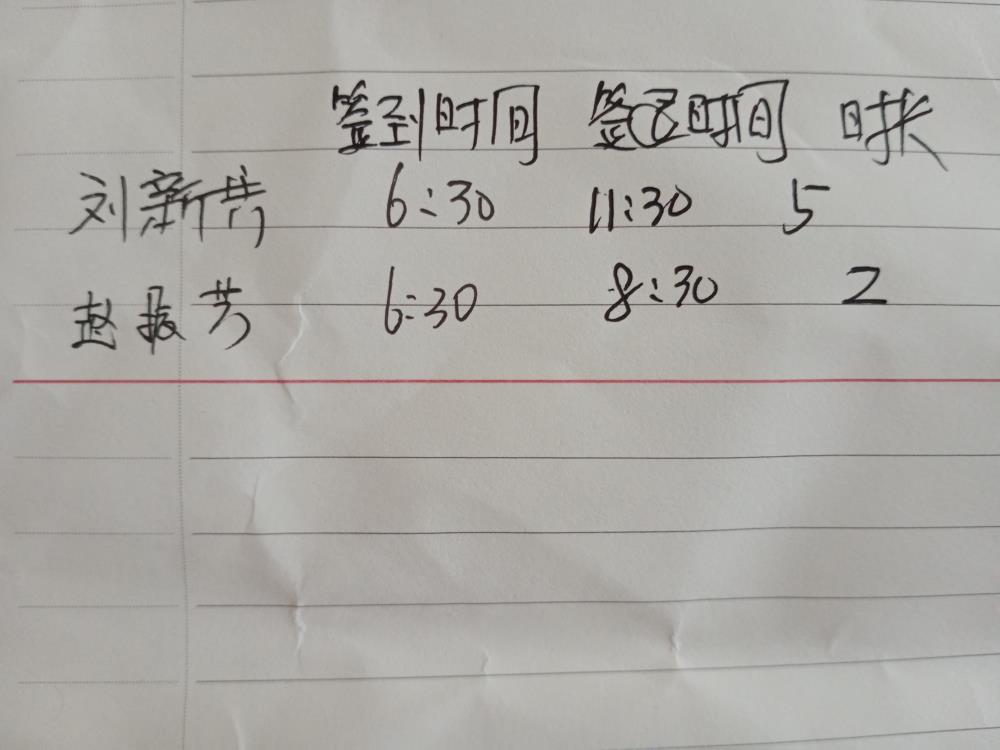 签到时间 签退时间 时长
刘新芳 6:30 11:30 5
赵振芳 6:30 8:30 2